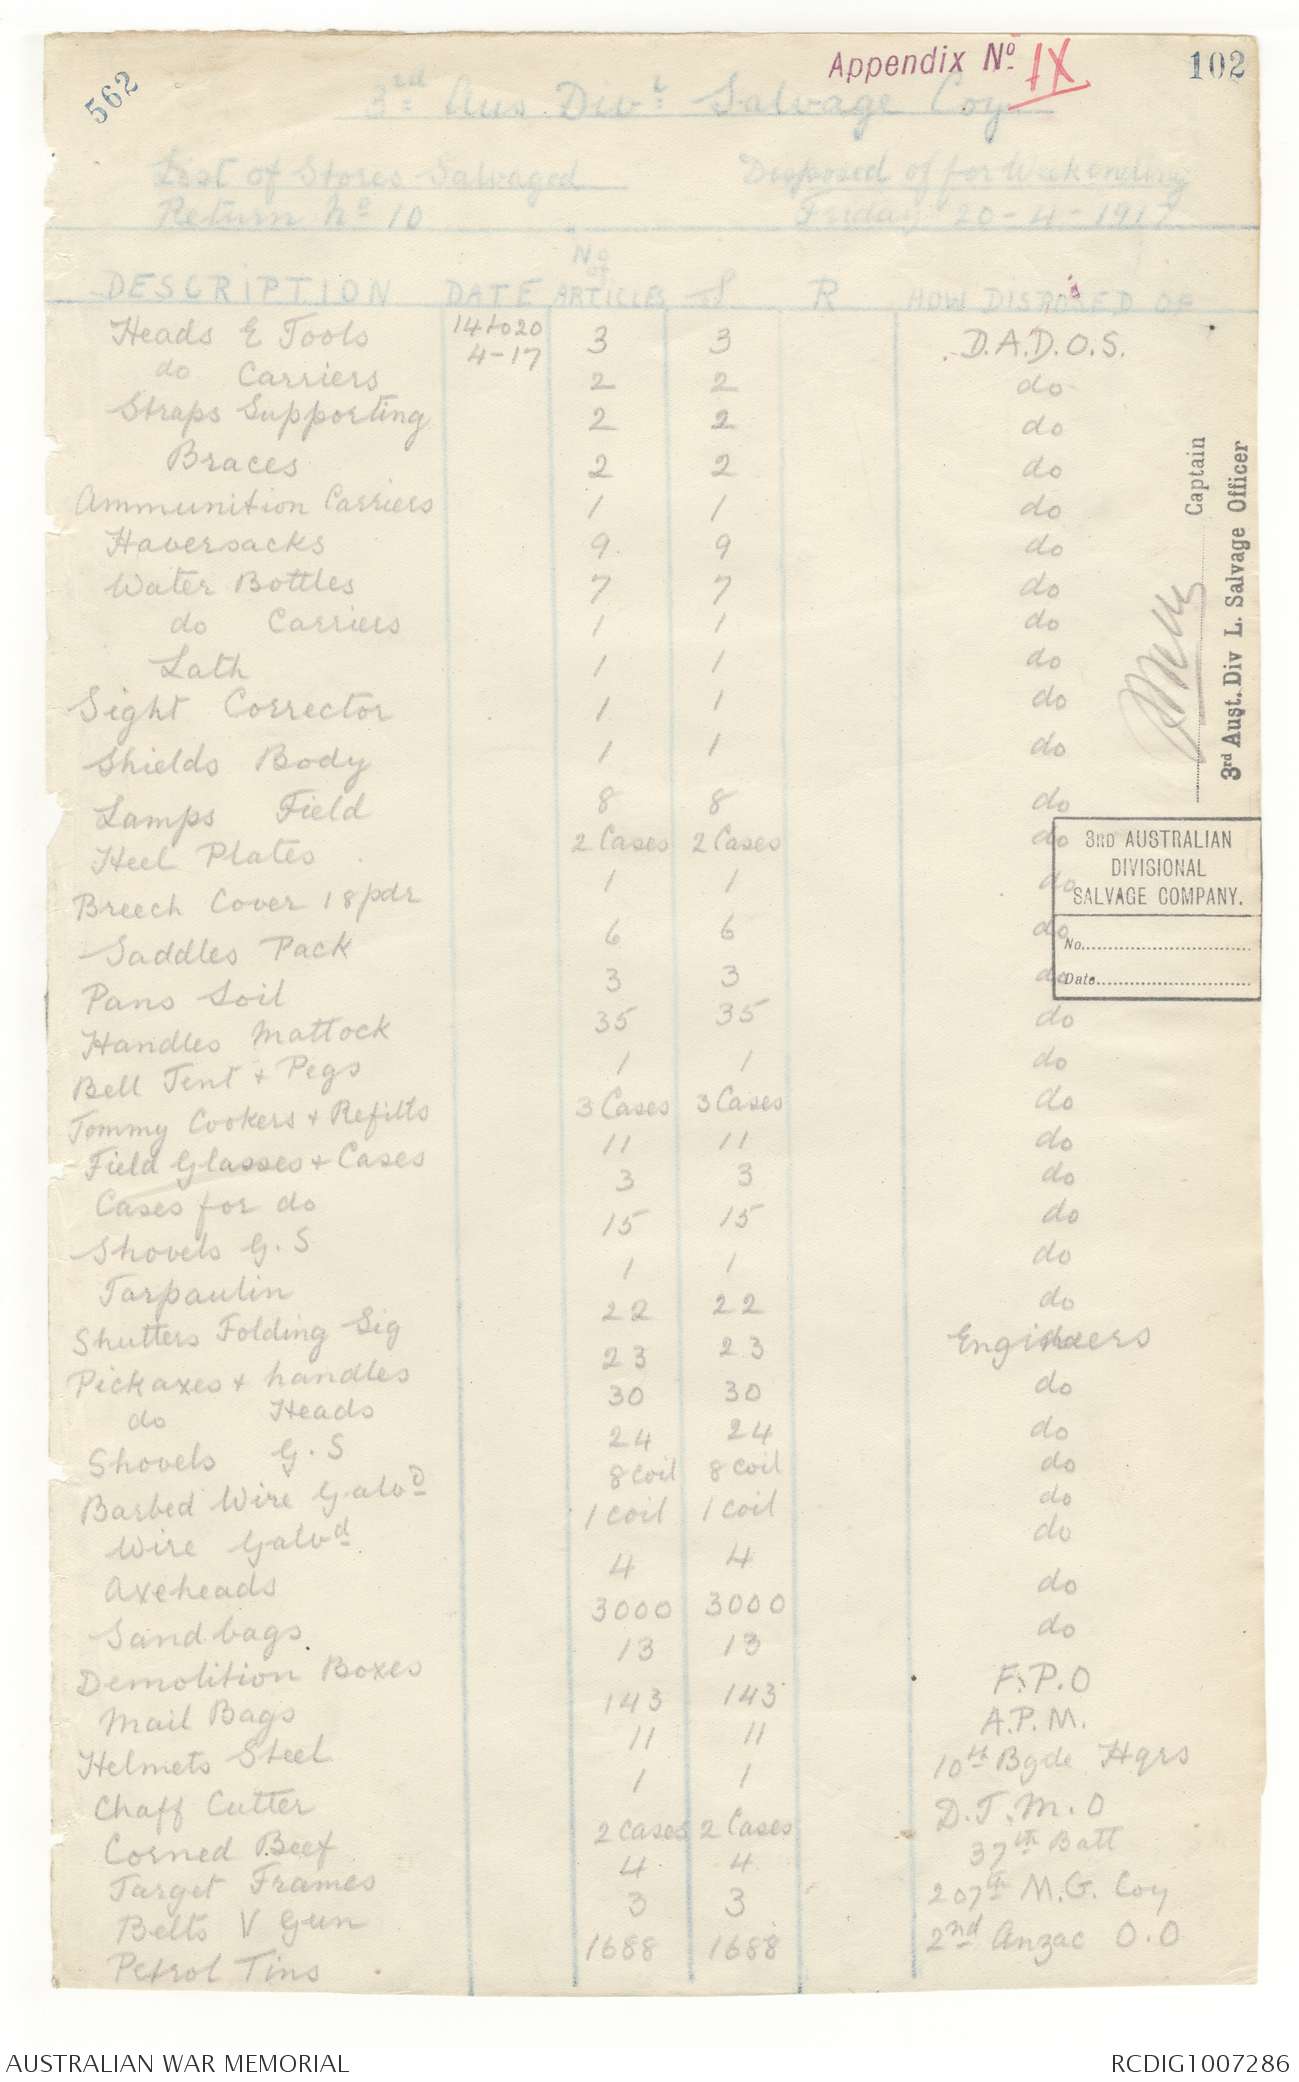 562
Appendix No. IX
102
3rd Aus. Divl. Salvage Coy
List of Stores Salvaged Disposed of for Week ending
Return No 10 Friday 20-4-1917
DESCRIPTION DATE No of ARTICLES S R HOW DISPOSED OF
Heads E Tools 14 to 20 4-17 3 3 D.A.D.O.S.
do Carriers 2 2 do
Straps Supporting 2 2 do
Braces 2 2 do
Ammunition Carriers 1 1 do
Haversacks 9 9 do
Water Bottles 7 7 do
do Carriers 1 1 do
Lath 1 1 do
Sight Corrector 1 1 do
Shields Body 1 1 do
Lamps Field 8 8 do
Heel Plates 2 Cases 2 Cases do
Breech Cover 18 pdr 1 1 do
Saddles Pack 6 6 do
Pans Soil 3 3 do
Handles Mattock 35 35 do
Bell Tent + Pegs 1 1 do
Tommy Cookers + Refills 3 Cases 3 Cases do
Field Glasses + Cases 11 11 do
Cases for do 3 3 do
Shovels G.S 15 15 do
Tarpaulin 1 1 do
Shutters Folding Sig 22 22 do
Pickaxes + handles 23 23 Engineers
do Heads 30 30 do
Shovels G.S 24 24 do
Barbed Wire Galvd 8 coil 8 coil do
Wire Galvd 1 coil 1 coil do
Axeheads 4 4 do
Sandbags 3000 3000 do
Demolition Boxes 13 13 do
Mail Bags 143 143 F.P.O
Helmets Steel 11 11 A.P.M.
Chaff Cutter 1 1 10th Bgde Hqrs
Corned Beef 2 cases 2 Cases D.T.M.O
Target Frames 4 4 37th Batt
Belts V Gun 3 3 207th M.G. Coy
Petrol Tins 1688 1688 2nd Anzac O.O
Captain
3rd Aust. Div L. Salvage Officer
3RD AUSTRALIAN
DIVISIONAL
SALVAGE COMPANY.
No.
Date
AUSTRALIAN WAR MEMORIAL
RCDIG1007286